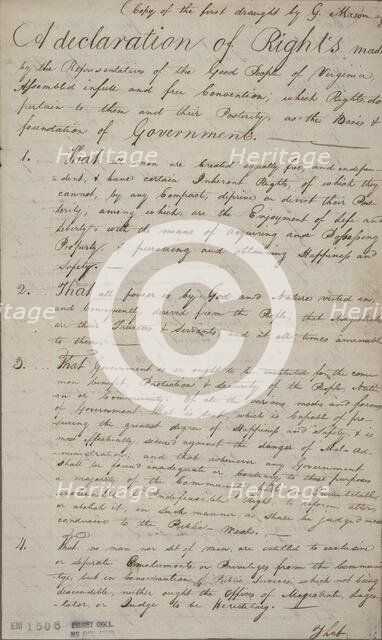 (Copy of the first draught by G. Mason
A declaration of Rights made
by the Representatives of the Good People of Virginia,
Assembled in full and free Convention; which Rights do
pertain to them and their Posterity, as the Basis &
foundation of Government.
1. That all men are Created equally free, and indepen-
-dent, & have certain Inherent Rights, of which they
cannot, by any Compact, deprive or divest their Pos-
terity, among which are the Enjoyment of life and
liberty, with the means of acquiring and Possessing
Property, & pursuing and obtaining Happiness and
Safety.
2. That all power is by God and Nature vested in,
and Consequently derived from the People; that Magistrates
are their Trustees & Servants, and at all times amenable
to them.
3. That Government is or ought to be instituted for the com-
mon benefit, Protection & security of the People, Nati-
on or Community. Of all the various modes and forms
of Government, that is best, which is Capable of pro-
ducing the greatest degree of Happiness and Safety, & is
most effectually secured against the danger of Mal-ad-
ministration; and that whenever any Government
shall be found inadequate or Contrary to these purposes
a majority of the Community hath an indubitable,
Indefeasible Right to reform, alter,
or abolish it, in such manner as shall be judged most
conducive to the Public Weal.
4. That no man, nor set of men, are entitled to exclusive
or separate Emoluments or Privileges from the Communi-
ty, but in Consideration of Public Services, which not being
descendible, neither ought the Offices of Magistrate, Legis-
lator, or Judge to be Hereditary.
That
EM 1506
EMMET COLL.
Heritage
Heritage
Heritage
Heritage
Heritage
Heritage
C